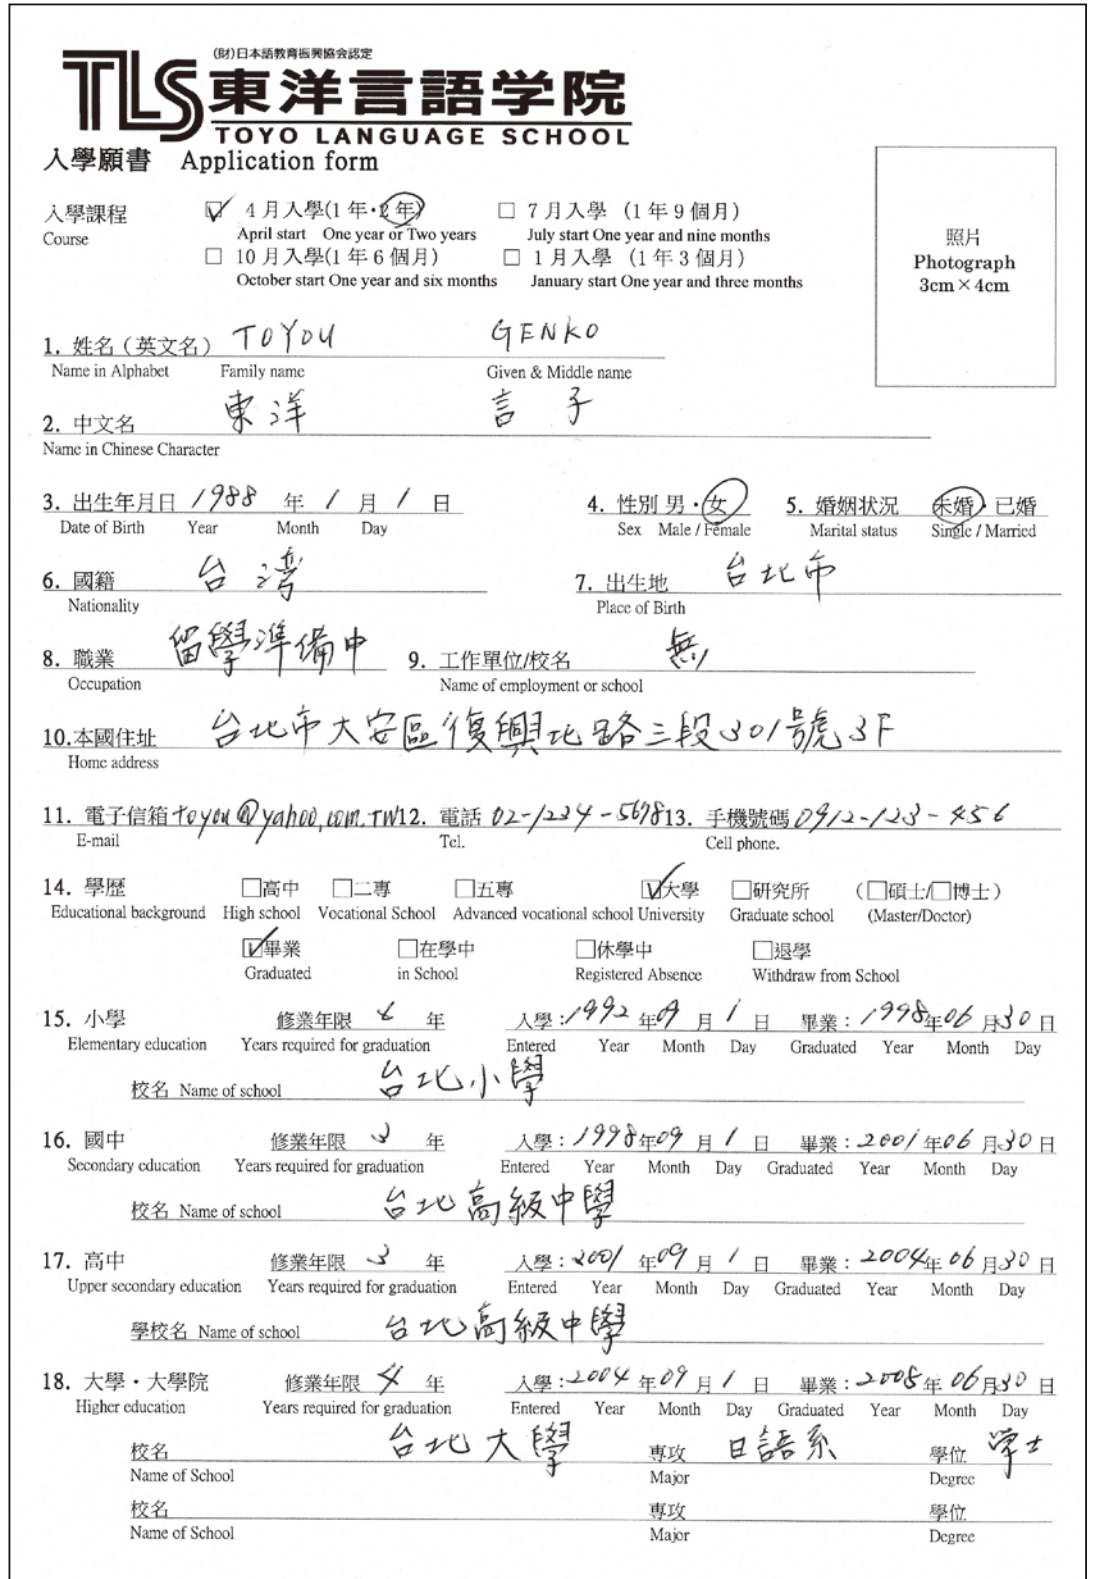 (財)日本語教育振興協会認定
TLS 東洋言語学院
TOYO LANGUAGE SCHOOL
入學願書 Application form
入學課程 ☑ 4月入學(1年・2年) □ 7月入學 (1年9個月)
Course April start One year or Two years July start One year and nine months
□ 10月入學(1年6個月) □ 1月入學 (1年3個月)
October start One year and six months January start One year and three months
照片
Photograph
3cm×4cm
1. 姓名(英文名) TOYOU GENKO
Name in Alphabet Family name Given & Middle name
2. 中文名 東洋 言子
Name in Chinese Character
3. 出生年月日 1988 年 1 月 1 日 4. 性別 男・女 5. 婚姻状況 未婚・已婚
Date of Birth Year Month Day Sex Male / Female Marital status Single / Married
6. 國籍 台湾 7. 出生地 台北市
Nationality Place of Birth
8. 職業 留學準備中 9. 工作單位/校名 無
Occupation Name of employment or school
10.本國住址 台北市大安區復興北路三段301號3F
Home address
11. 電子信箱 toyou@yahoo.com.TW 12. 電話 02-1234-5678 13. 手機號碼 0912-123-456
E-mail Tel. Cell phone.
14. 學歷 □高中 □二專 □五專 ☑大學 □研究所 (□碩士/□博士)
Educational background High school Vocational School Advanced vocational school University Graduate school (Master/Doctor)
☑畢業 □在學中 □休學中 □退學
Graduated in School Registered Absence Withdraw from School
15. 小學 修業年限 6 年 入學:1992 年09 月 1 日 畢業:1998年06 月30日
Elementary education Years required for graduation Entered Year Month Day Graduated Year Month Day
校名 Name of school 台北小學
16. 國中 修業年限 3 年 入學:1998年09 月 1 日 畢業:2001年06 月30日
Secondary education Years required for graduation Entered Year Month Day Graduated Year Month Day
校名 Name of school 台北高級中學
17. 高中 修業年限 3 年 入學:2001 年09 月 1 日 畢業:2004年06 月30日
Upper secondary education Years required for graduation Entered Year Month Day Graduated Year Month Day
學校名 Name of school 台北高級中學
18. 大學・大學院 修業年限 4 年 入學:2004 年09 月 1 日 畢業:2008年 06 月30日
Higher education Years required for graduation Entered Year Month Day Graduated Year Month Day
校名 台北大學 專攻 日語系 學位 学士
Name of School Major Degree
校名 專攻 學位
Name of School Major Degree